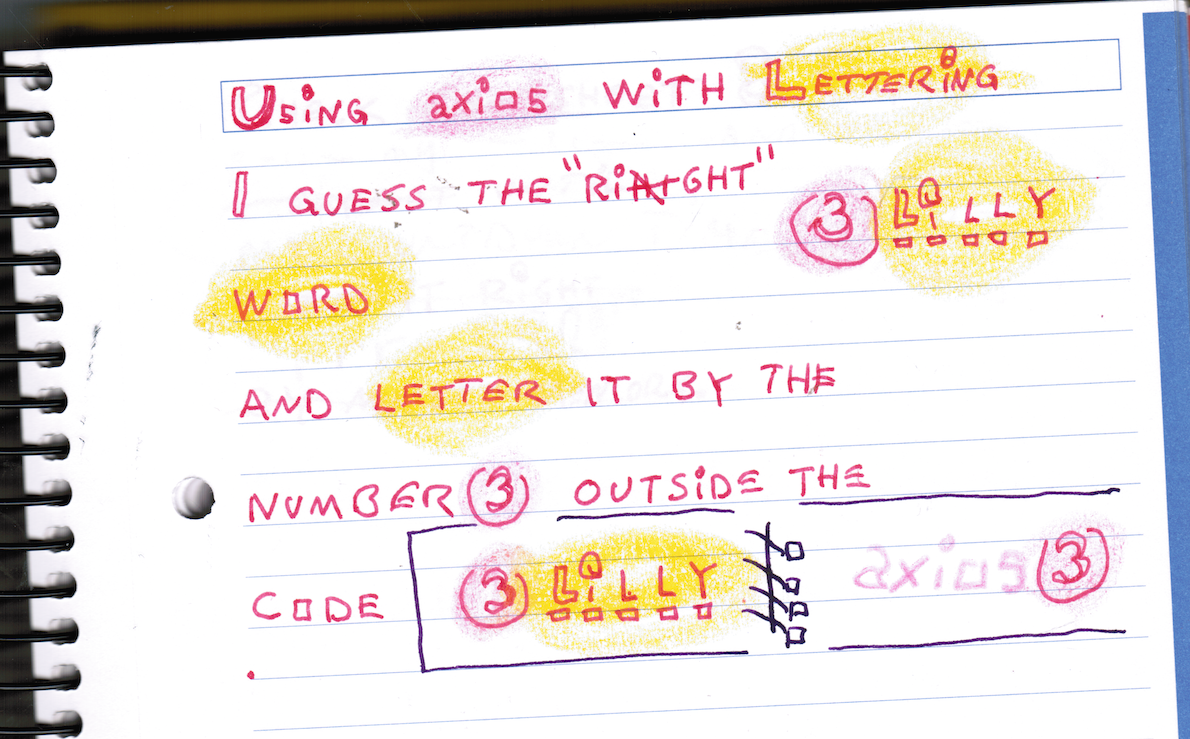 USiNG axios WiTH LETTERiNG
I GUESS THE "RiGHT"
(3) LiLLY
WORD
AND LETTER IT BY THE
NUMBER (3) OUTSiDE THE
CODE (3) LiLLY axios (3)